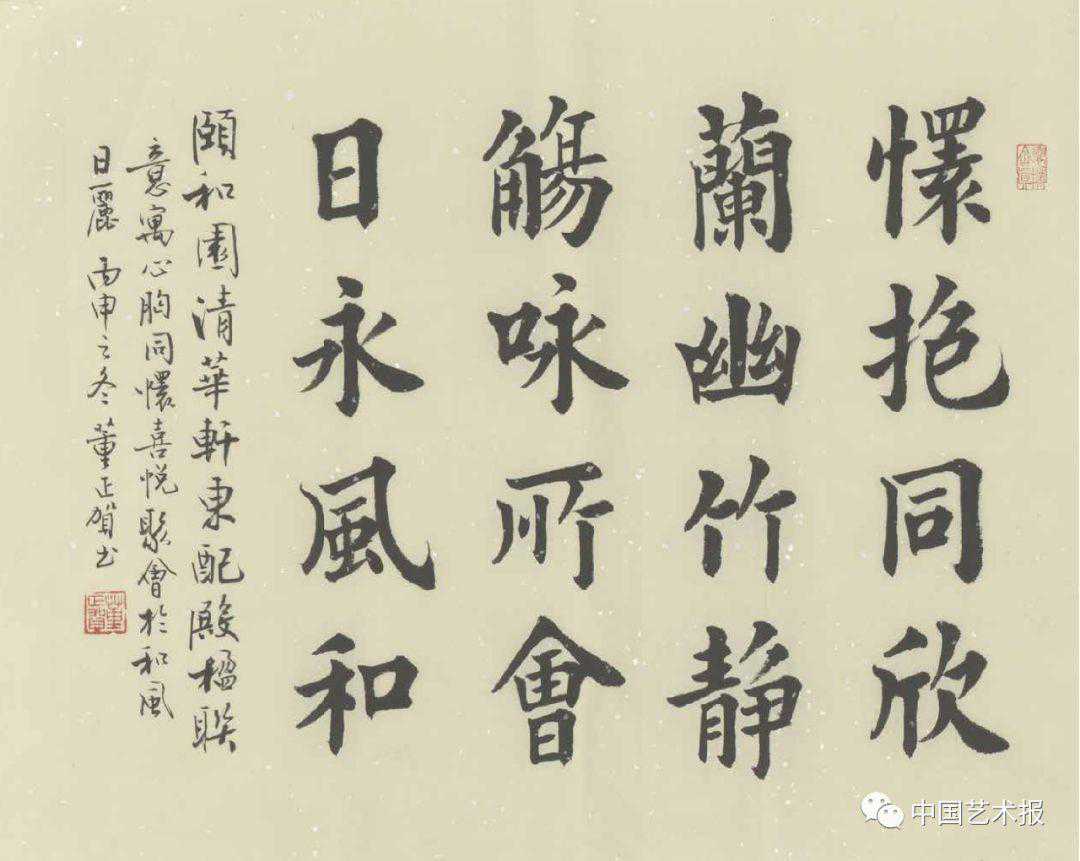 懷抱同欣
蘭幽竹静
觴咏所會
日永風和
頤和園清華軒東配殿楹联
意寓心胸同懷喜悦聚會於和風
日麗 丙申之冬董正賀书
中国艺术报